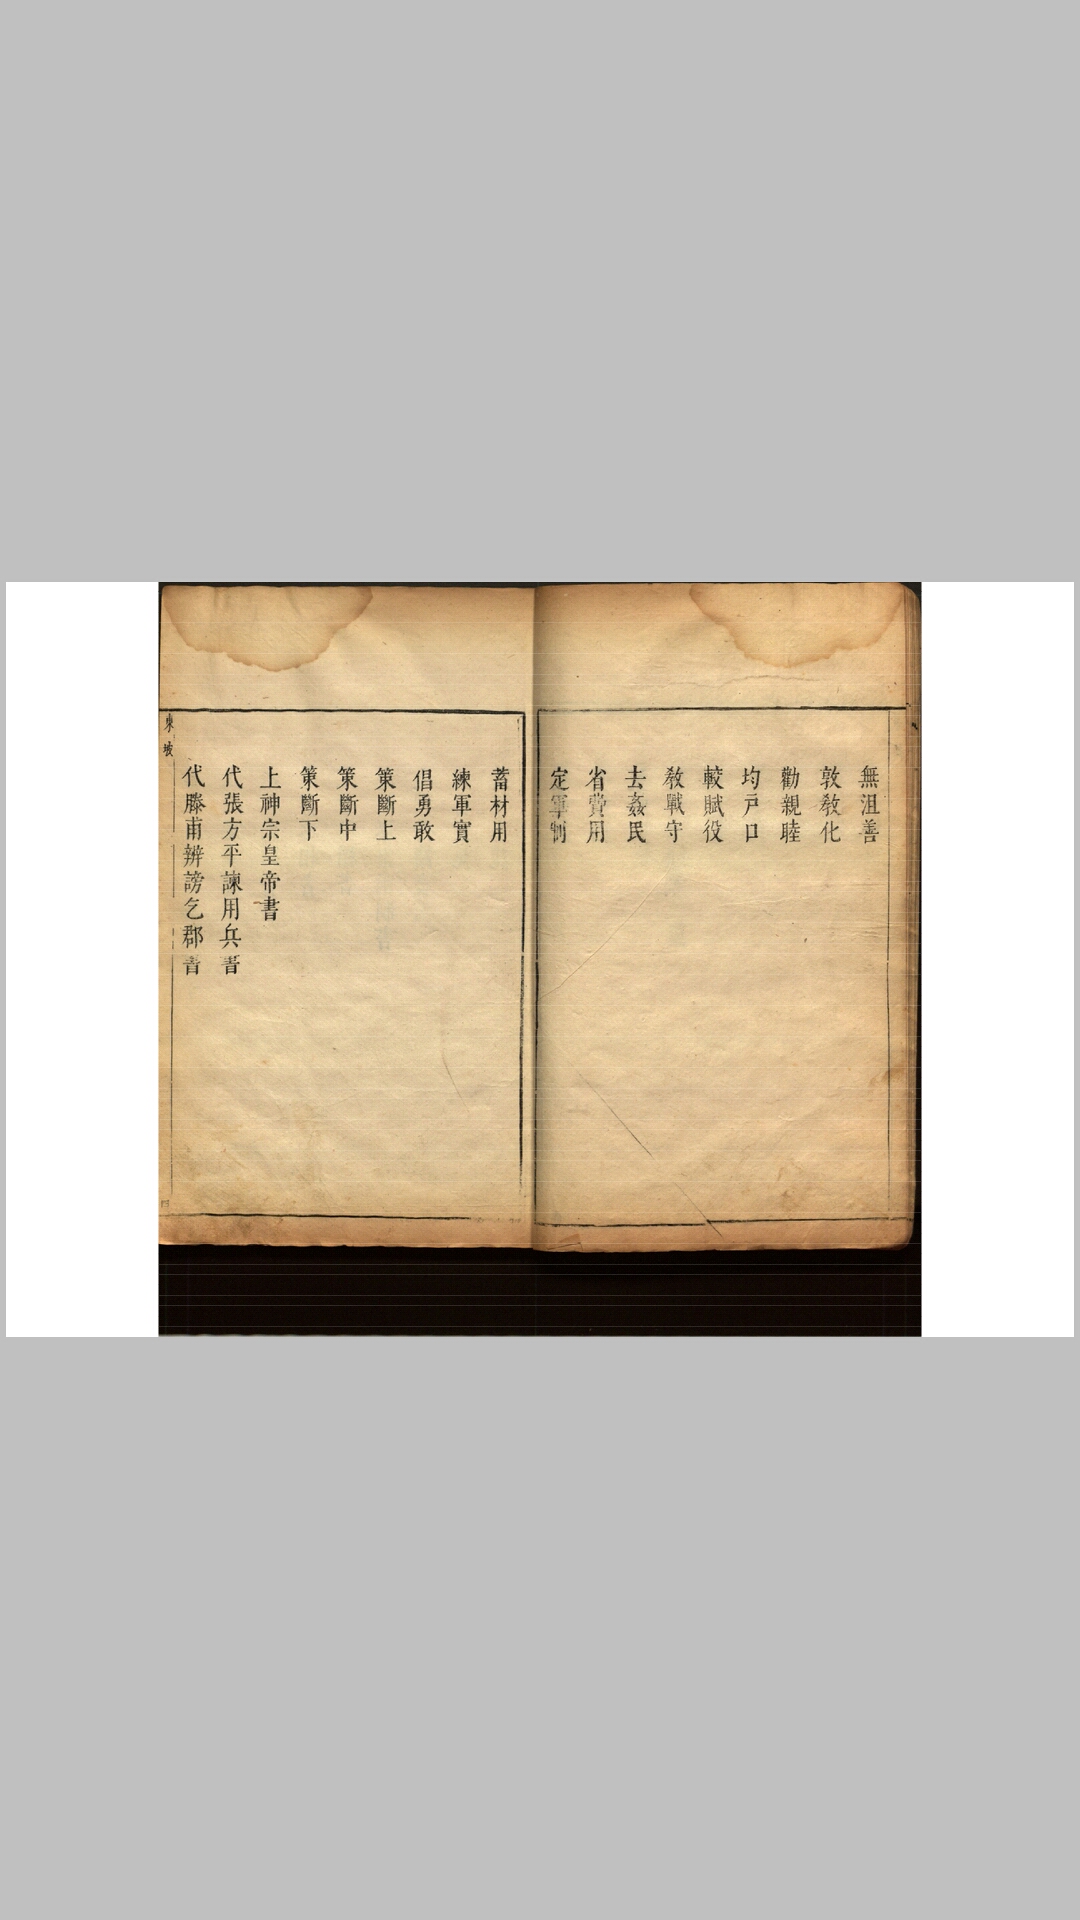 無沮善
敦敎化
勸親睦
均戸口
較賦役
敎戰守
去姦民
省費用
定軍制
蓄材用
練軍實
倡勇敢
策斷上
策斷中
策斷下
上神宗皇帝書
代張方平諫用兵書
代滕甫辨謗乞郡書
東坡